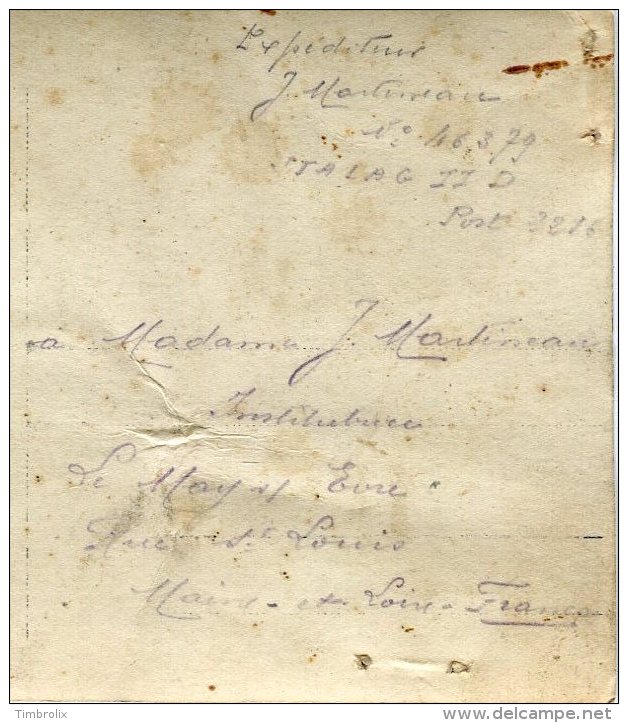 Expéditeur
J. Martineau
N° 46379
STALAG II D
Post 3216
a Madame J. Martineau
Institutrice
Le May s/ Evre
Rue St Louis
Maine - et - Loire - France
Timbrolix
delcampe.net